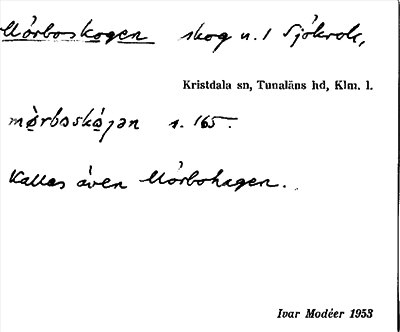 Mörboskogen skog n. 1 Sjökrok,
Kristdala sn, Tunaläns hd, Klm. l.
mö̀rboskó̀gən s. 165.
Kallas även Mörbohagen.
Ivar Modéer 1953